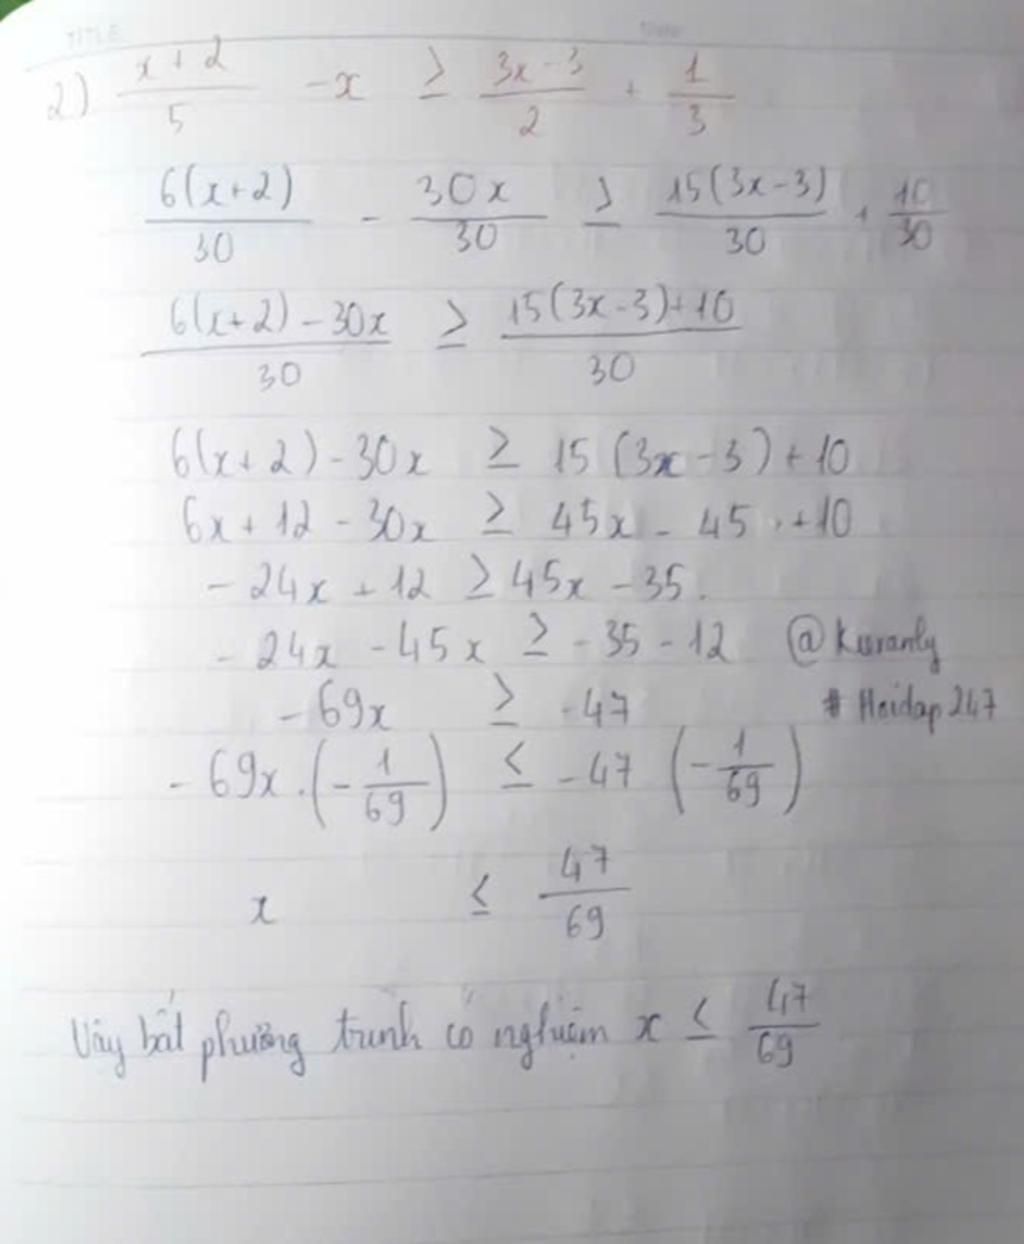 TITLE
2) \frac{x+2}{5} - x ≥ \frac{3x-3}{2} + \frac{1}{3}
\frac{6(x+2)}{30} - \frac{30x}{30} ≥ \frac{15(3x-3)}{30} + \frac{10}{30}
\frac{6(x+2)-30x}{30} ≥ \frac{15(3x-3)+10}{30}
6(x+2)-30x ≥ 15(3x-3)+10
6x+12-30x ≥ 45x-45+10
-24x+12 ≥ 45x-35.
-24x-45x ≥ -35-12 @Kuranly
-69x ≥ -47 # Hoidap247
-69x.(-\frac{1}{69}) ≤ -47(-\frac{1}{69})
x ≤ \frac{47}{69}
Vậy bất phương trình có nghiệm x ≤ \frac{47}{69}